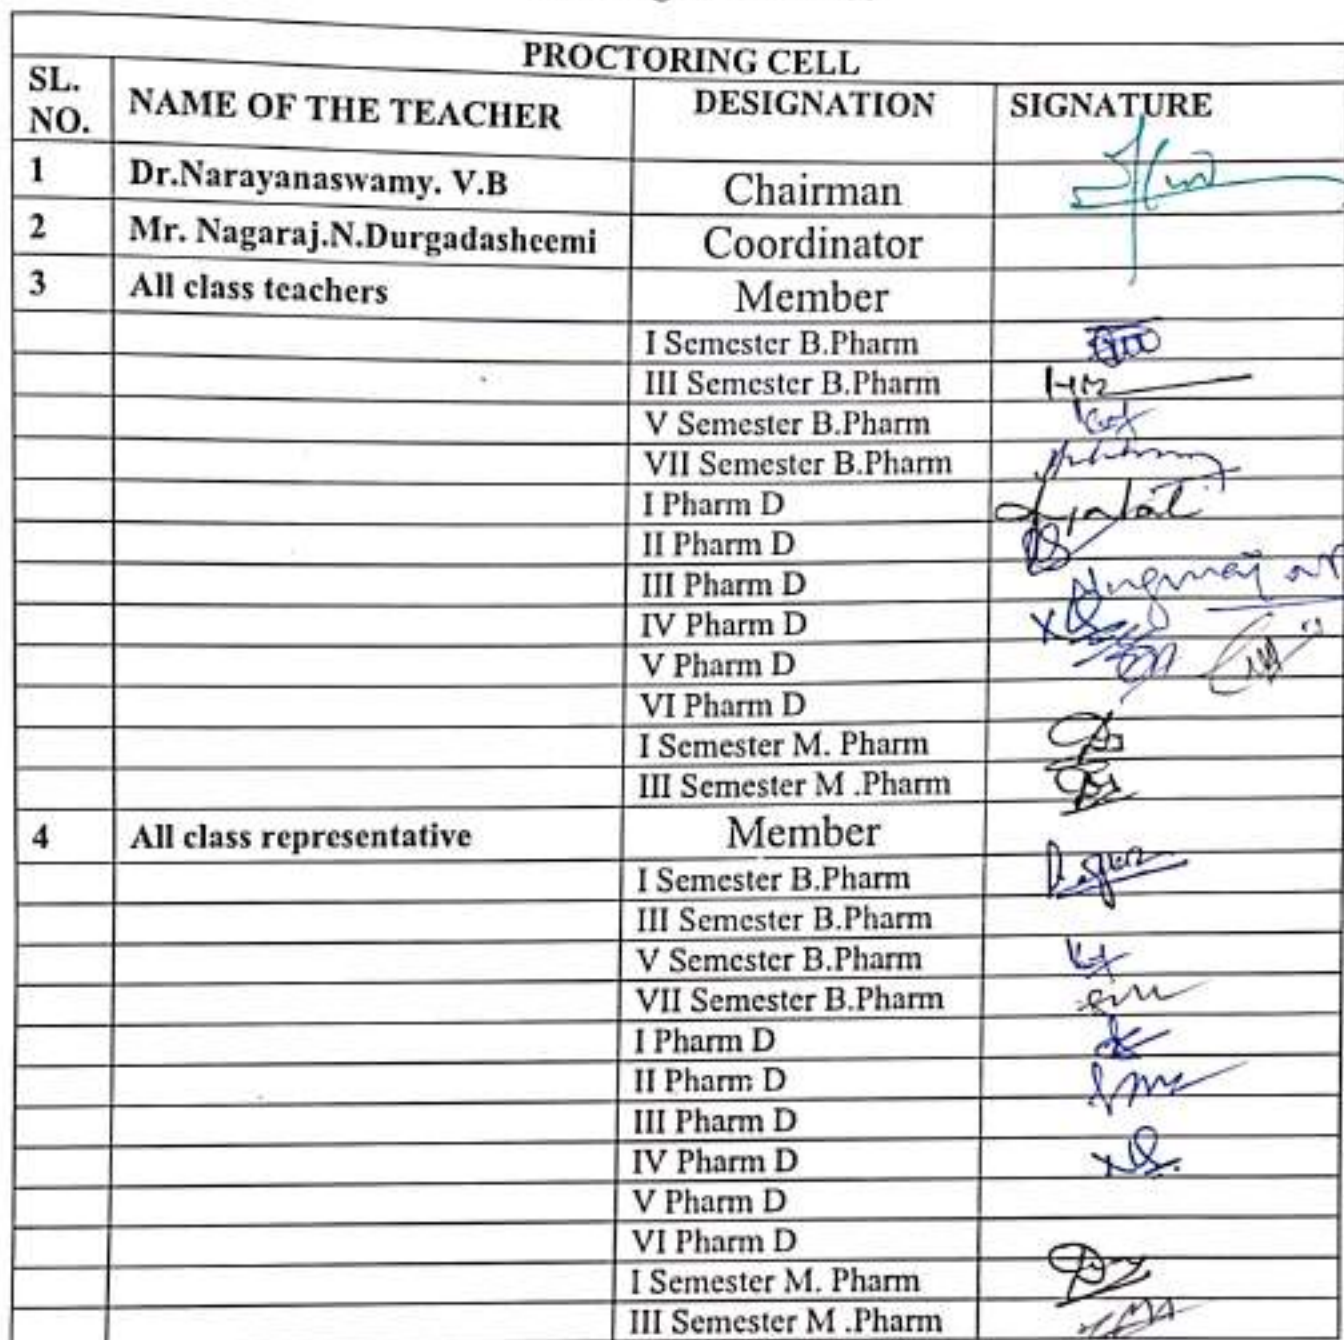 PROCTORING CELL
SL. NO. NAME OF THE TEACHER DESIGNATION SIGNATURE
1 Dr.Narayanaswamy. V.B Chairman
2 Mr. Nagaraj.N.Durgadasheemi Coordinator
3 All class teachers Member
I Semester B.Pharm
III Semester B.Pharm
V Semester B.Pharm
VII Semester B.Pharm
I Pharm D
II Pharm D
III Pharm D
IV Pharm D
V Pharm D
VI Pharm D
I Semester M. Pharm
III Semester M .Pharm
4 All class representative Member
I Semester B.Pharm
III Semester B.Pharm
V Semester B.Pharm
VII Semester B.Pharm
I Pharm D
II Pharm D
III Pharm D
IV Pharm D
V Pharm D
VI Pharm D
I Semester M. Pharm
III Semester M .Pharm